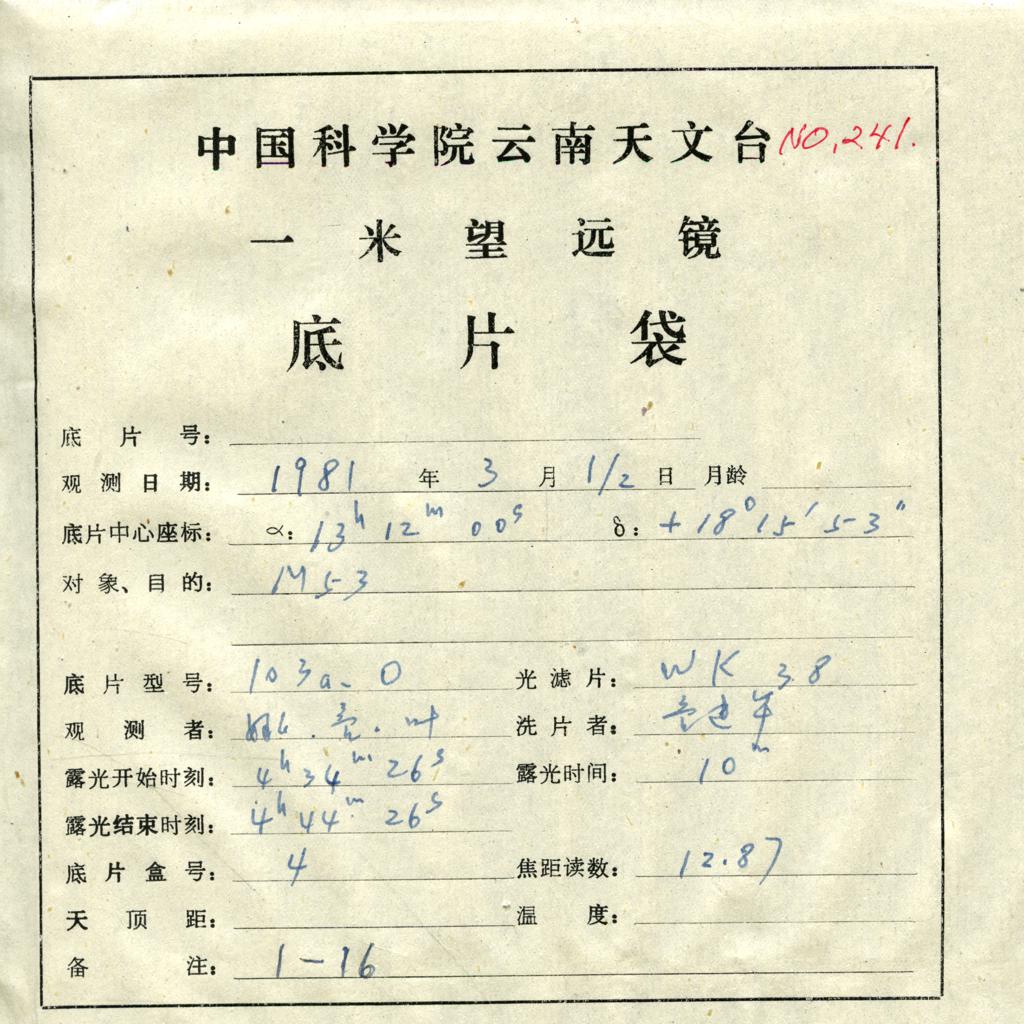 中国科学院云南天文台 NO,241.
一米望远镜
底片袋
底片号：
观测日期： 1981 年 3 月 1/2 日 月龄
底片中心座标： α： 13h 12m 00s δ： +18°15′53″
对象、目的： M53
底片型号： 103a-O 光滤片： WK 38
观测者： 叶 洗片者：
露光开始时刻： 4h34m26s 露光时间： 10m
露光结束时刻： 4h44m26s
底片盒号： 4 焦距读数： 12.87
天顶距： 温度：
备注： 1-16